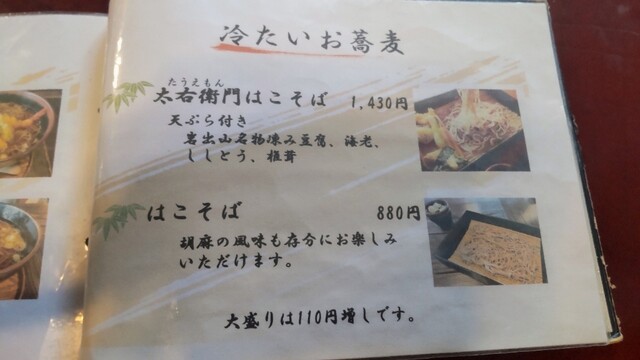 冷たいお蕎麦
たうえもん
太右衛門はこそば 1,430円
天ぷら付き
岩出山名物凍み豆腐、海老、
ししとう、椎茸
はこそば 880円
胡麻の風味も存分にお楽しみ
いただけます。
大盛りは110円増しです。